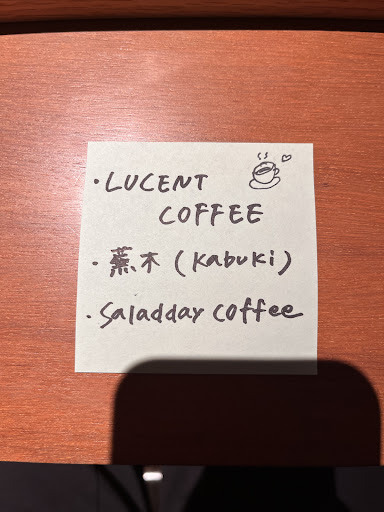 ・LUCENT
COFFEE
・蕪木 (Kabuki)
・Saladday coffee